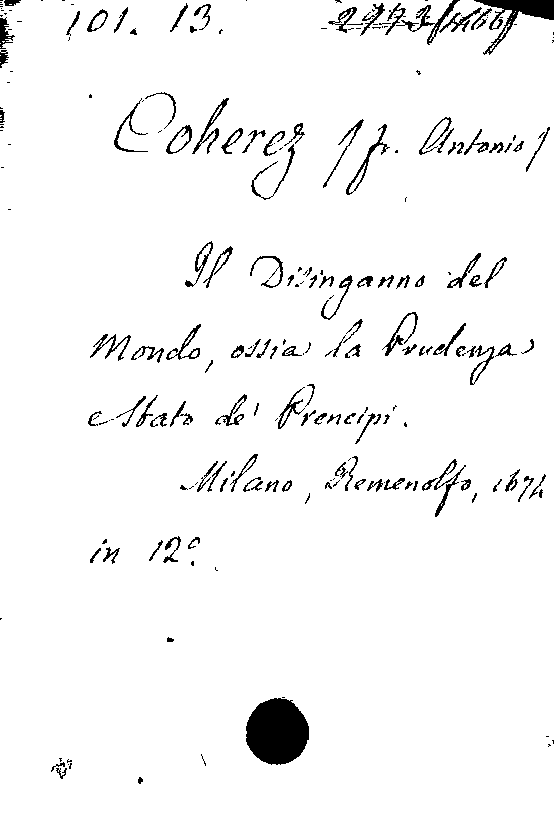 101. 13. 2973
Coherez / fr. Antonio /
Il Disinganno del
Mondo, ossia la Prudenza
e Stato de' Prencipi.
Milano, Remenolfo, 1674
in 12º.